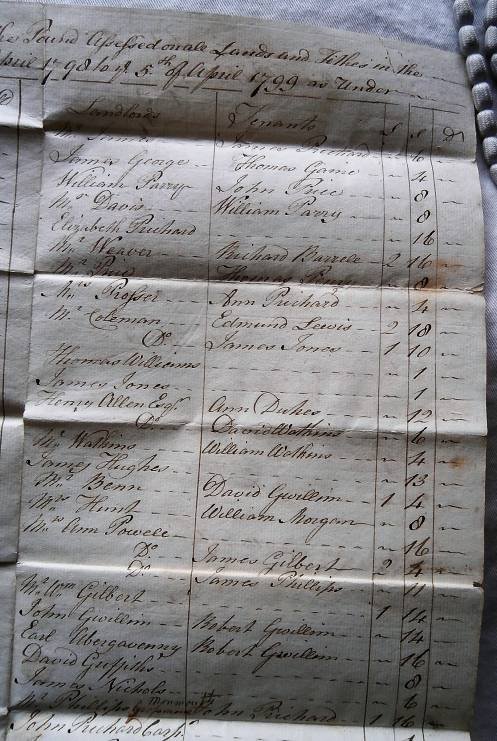 the Pound Assessed on all Lands and Tithes in the
April 1798 to ye 5th of April 1799 as Under
Landlords Tenants £ s d
James Prichard 6
James George Thomas Game 4
William Parry John Price 8
Mr David William Parry 8
Elizabeth Prichard 16
Mr Weaver Richard 2 16
Mr Price Thomas 8
Mrs Prosser Ann Prichard 4
Mr Coleman Edmund Lewis 2 18
Do James Jones 1 10
Thomas Williams 1
James Jones 1
Henry Allen Esqr Ann Dukes 12
Do David Watkins 6
Mr Watkins William Watkins 4
James Hughes 13
Mr Benn David Gwillim 1 4
Mrs Hunt William Morgan 8
Mrs Ann Powell 16
Do James Gilbert 2 4
Do James Phillips 11
Mr Wm Gilbert 1 14
John Gwillim Robert Gwillim 14
Earl Abergavenny Robert Gwillim 16
David Griffiths 8
James Nichols 6
Mr Phillips Monmouth John Prichard 1 16
John Prichard Carpr